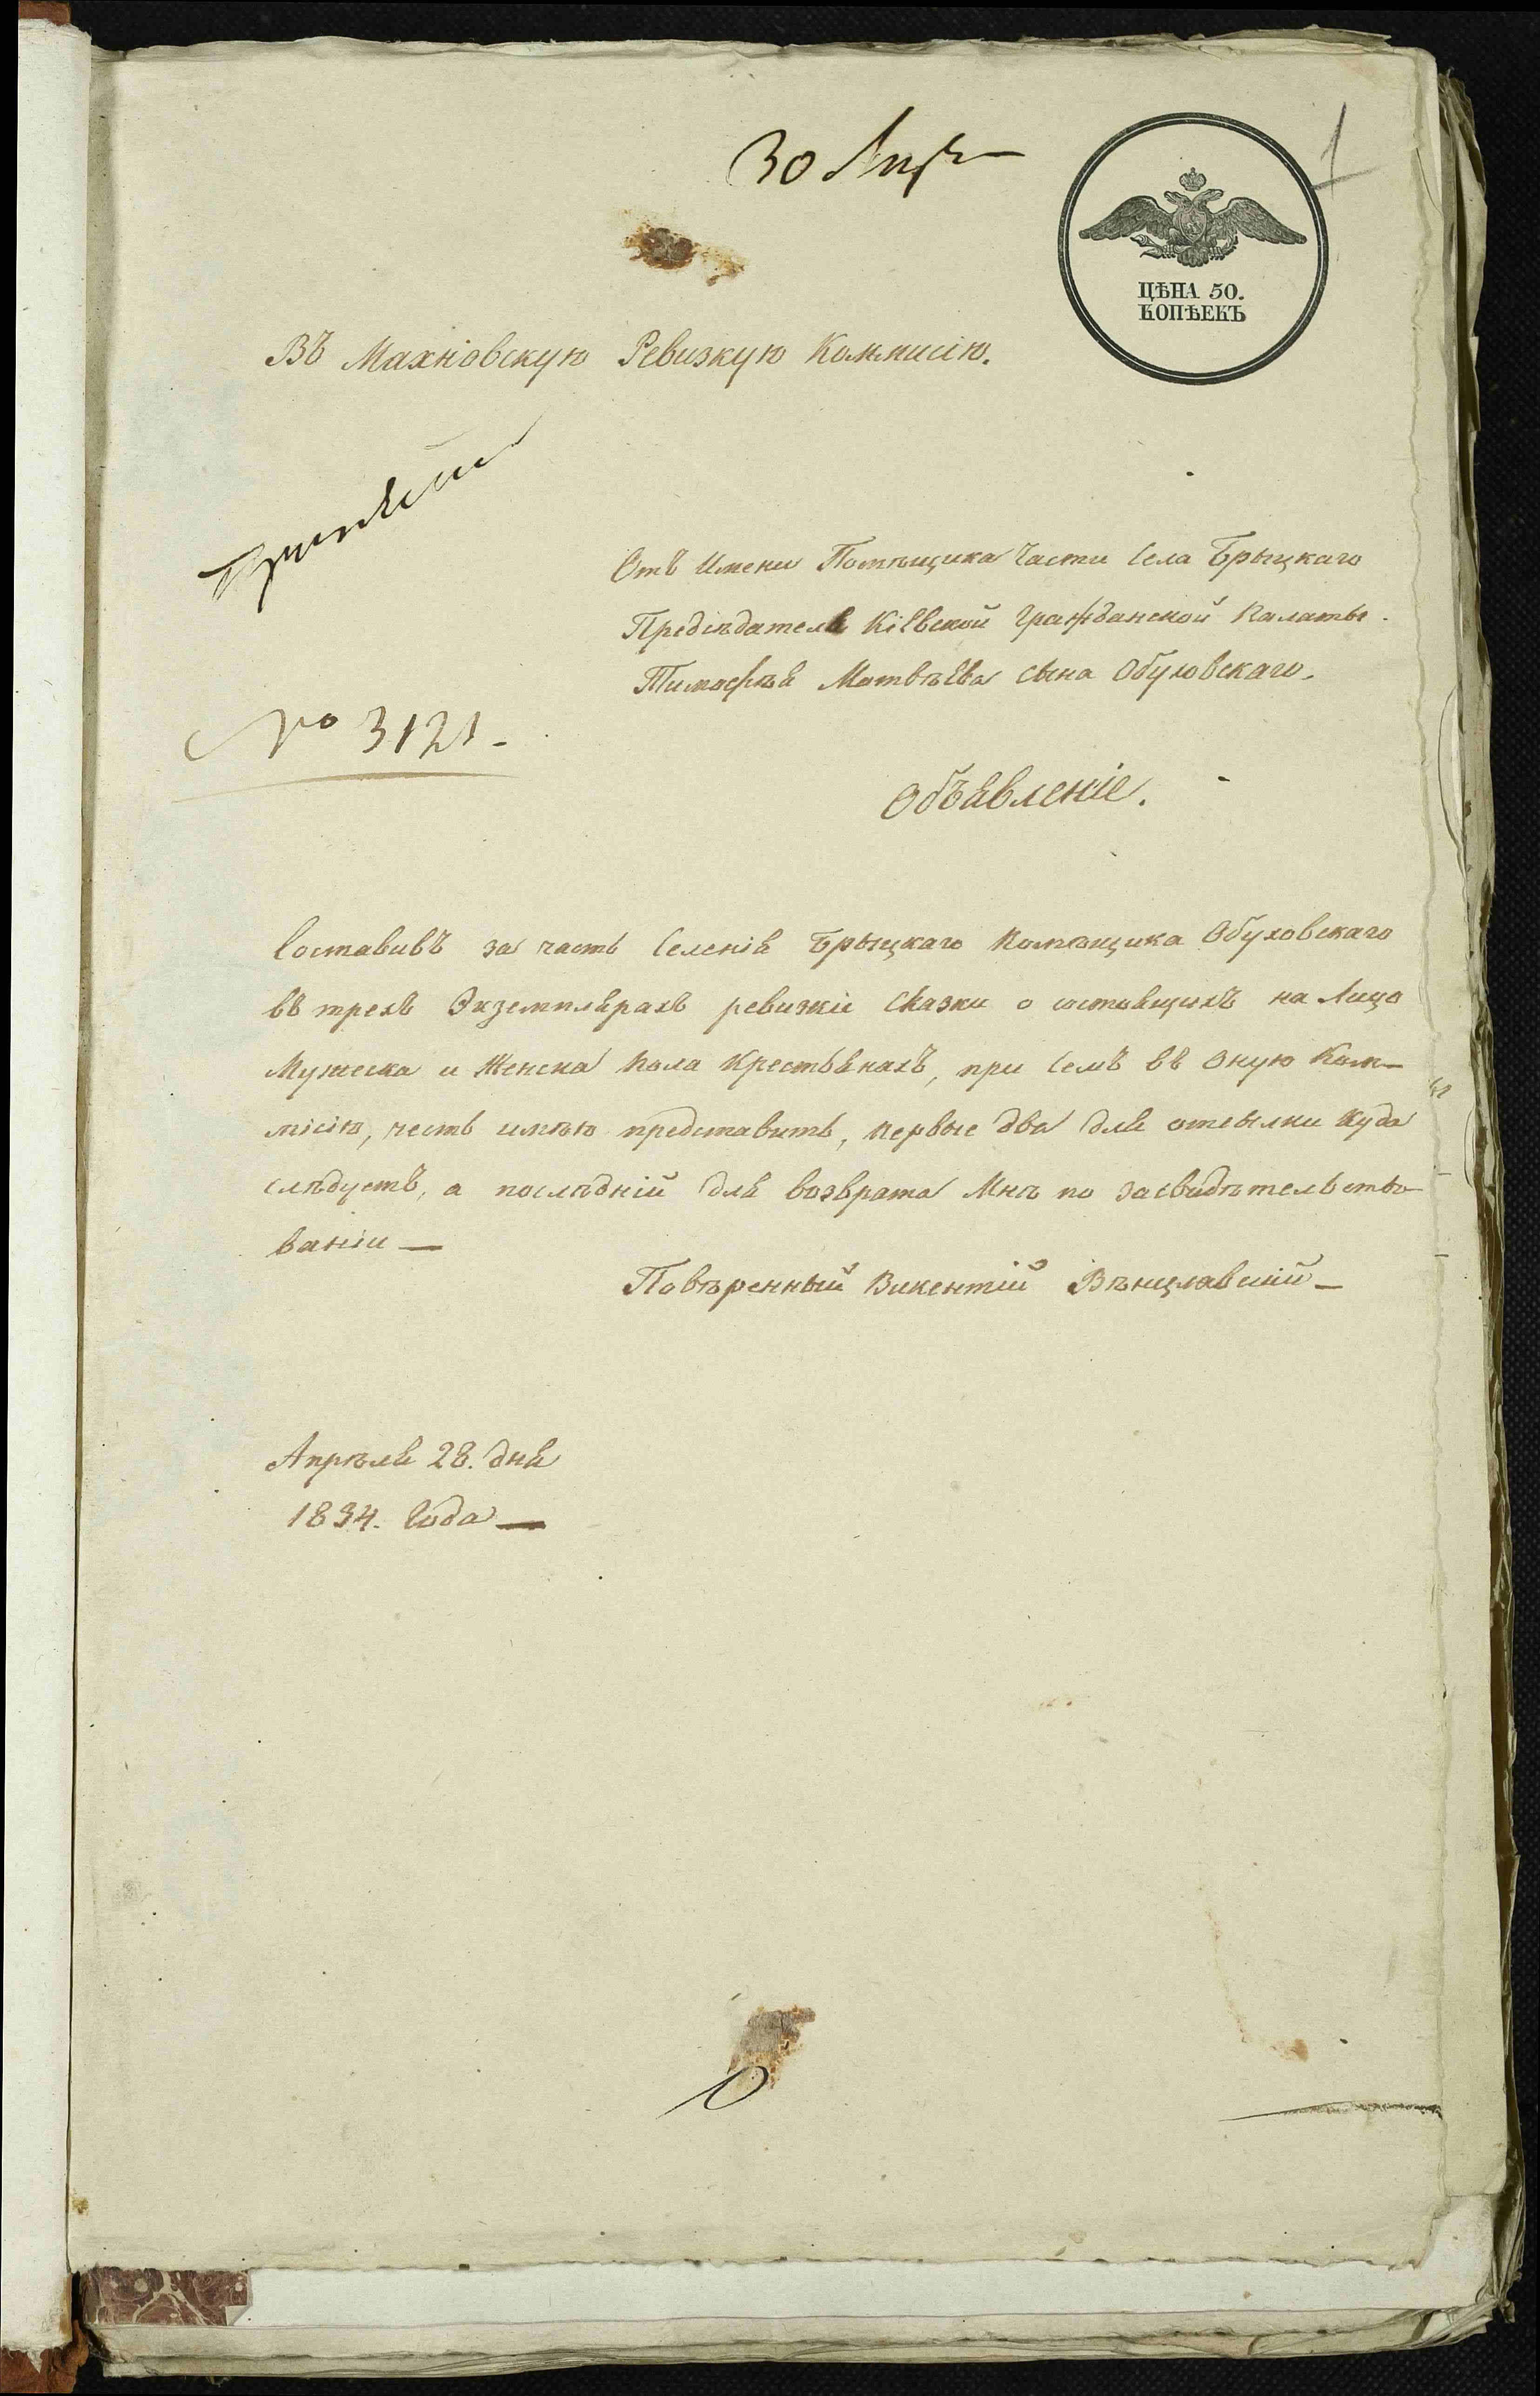 30 Апр
1
ЦѢНА 50.
КОПѢЕКЪ
Въ Махновскую Ревизкую Коммисію.
Отъ Имени Помѣщика Части Села Брыцкаго
Предсѣдателя Кіевской Гражданской Палаты
Тимофѣя Матвѣева сына Обуховскаго.
№ 3121.
Объявленіе.
Составивъ за часть Селенія Брыцкаго Помѣщика Обуховскаго
въ трехъ Экземплярахъ ревизкіе Сказки о состоящихъ на Лицо
Мужеска и Женска Пола Крестьянахъ, при семъ въ Оную Ком-
мисію, честь имѣю представить, первые два для отсылки куда
слѣдуетъ, а послѣдній для возврата Мнѣ по засвидѣтельство
ваніи —
Повѣренный Викентій Вѣнцлавскій —
Апрѣля 28. дня
1834. Года —